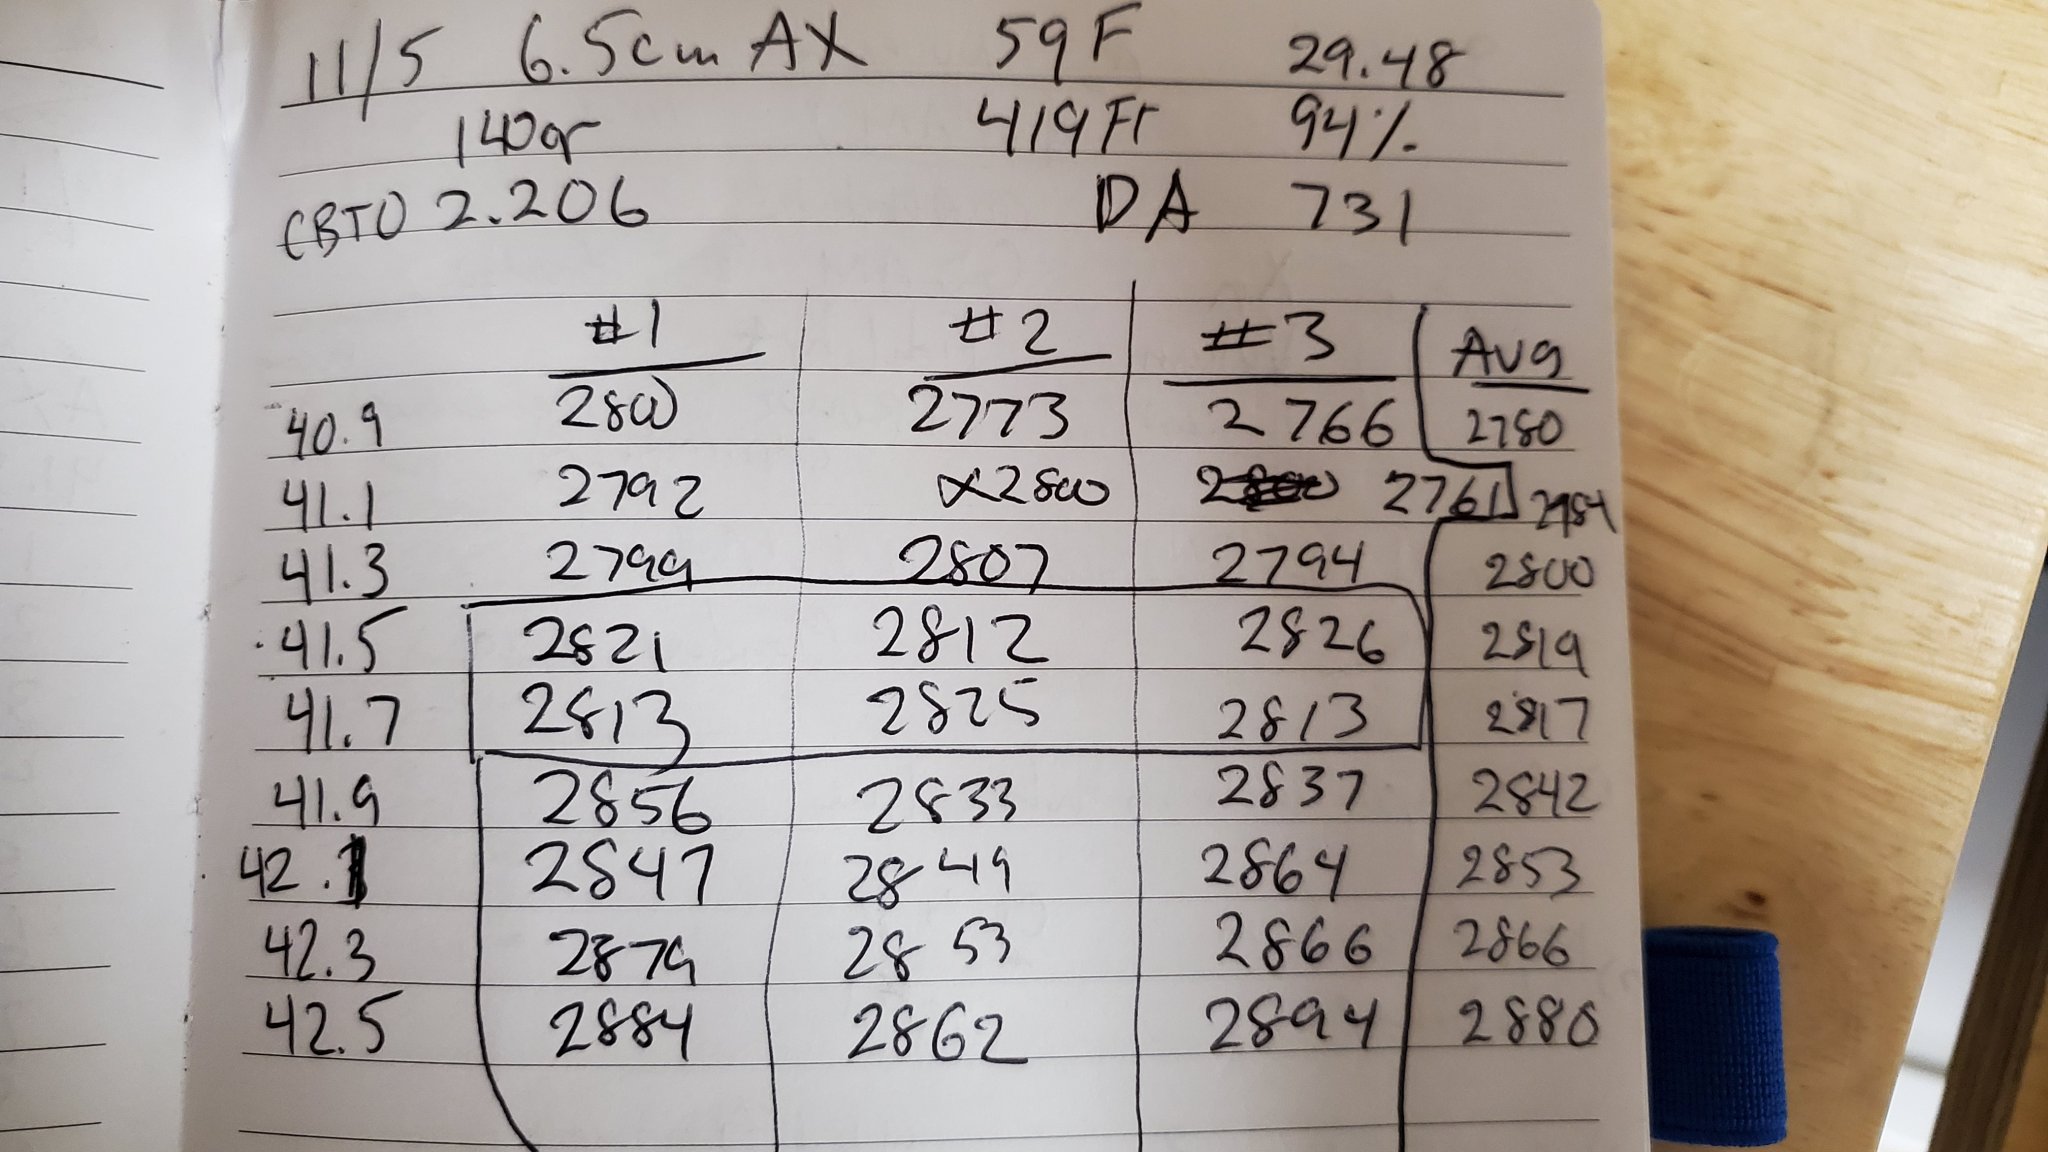 11/5 6.5cm AX 59F 29.48
140gr 419Ft 94%
CBTO 2.206 DA 731
#1 #2 #3 Avg
40.9 2800 2773 2766 2780
41.1 2792 x2800 2761
41.3 2799 2807 2794 2800
41.5 2821 2812 2826 2819
41.7 2813 2825 2813 2817
41.9 2856 2833 2837 2842
42.1 2847 2849 2864 2853
42.3 2879 2853 2866 2866
42.5 2884 2862 2894 2880